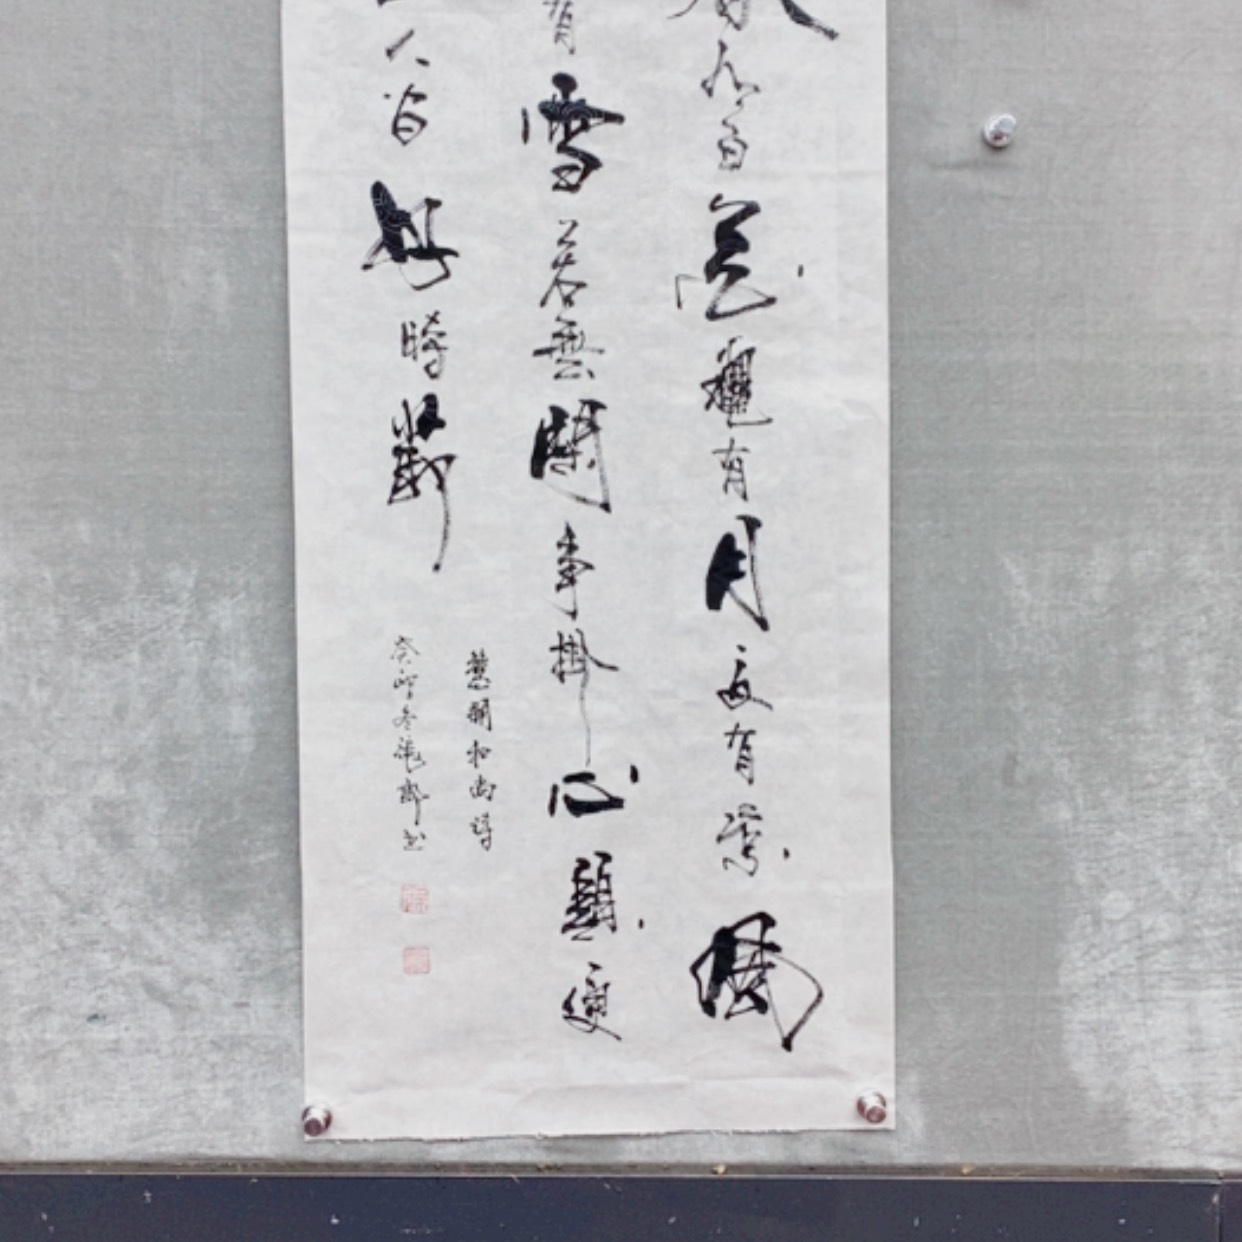 春有百花龝有月夏有凉風
有雪若無閑事掛心頭便
人間好時節
慧開和尚詩
癸卯冬書